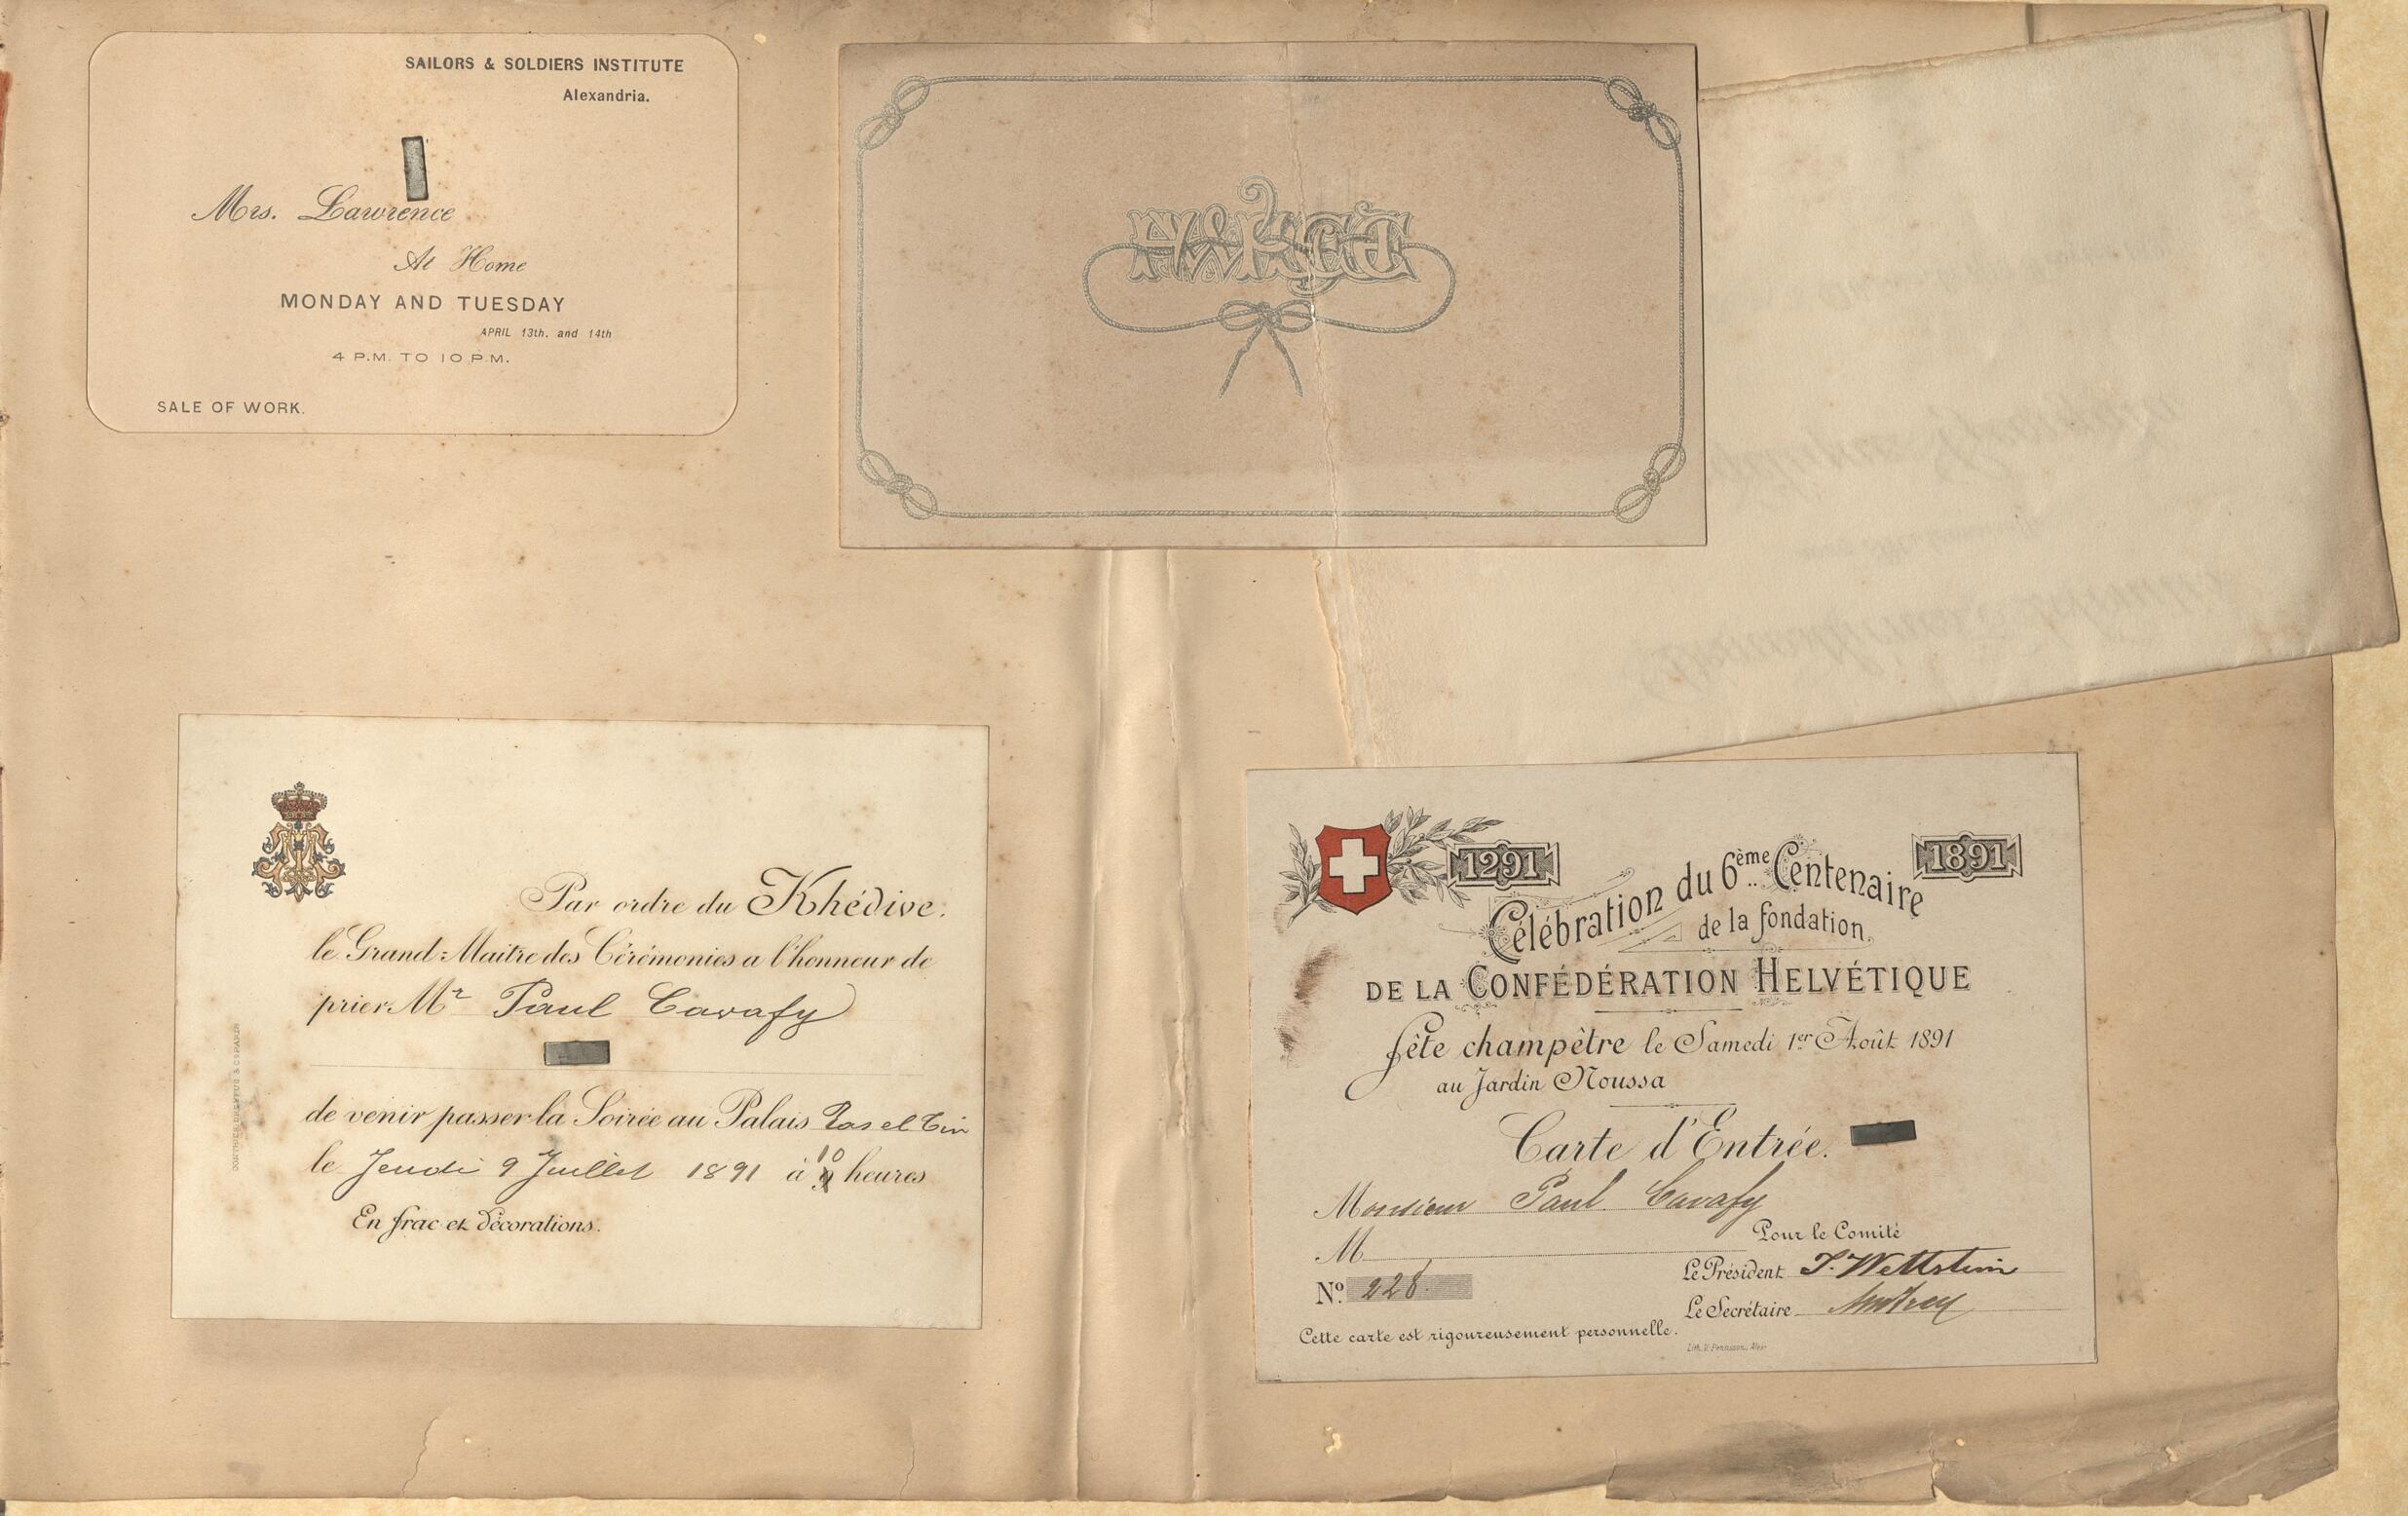 SAILORS & SOLDIERS INSTITUTE
Alexandria.
Mrs. Lawrence
At Home
MONDAY AND TUESDAY
APRIL 13th. and 14th
4 P.M. TO 10 P.M.
SALE OF WORK.
Par ordre du Khédive.
le Grand-Maitre des Cérémonies a l'honneur de
prier Mr Paul Cavafy
de venir passer la Soirée au Palais Ras el Tin
le Jeudi 9 Juillet 1891 à 10 heures
En frac et décorations.
1291
1891
Célébration du 6ème Centenaire
de la fondation
DE LA CONFÉDÉRATION HELVÉTIQUE
fête champêtre le Samedi 1er Août 1891
au Jardin Noussa
Carte d'Entrée.
Monsieur Paul Cavafy
M
Pour le Comité
Le Président J. Wettstein
No. 228
Le Secrétaire
Cette carte est rigoureusement personnelle.